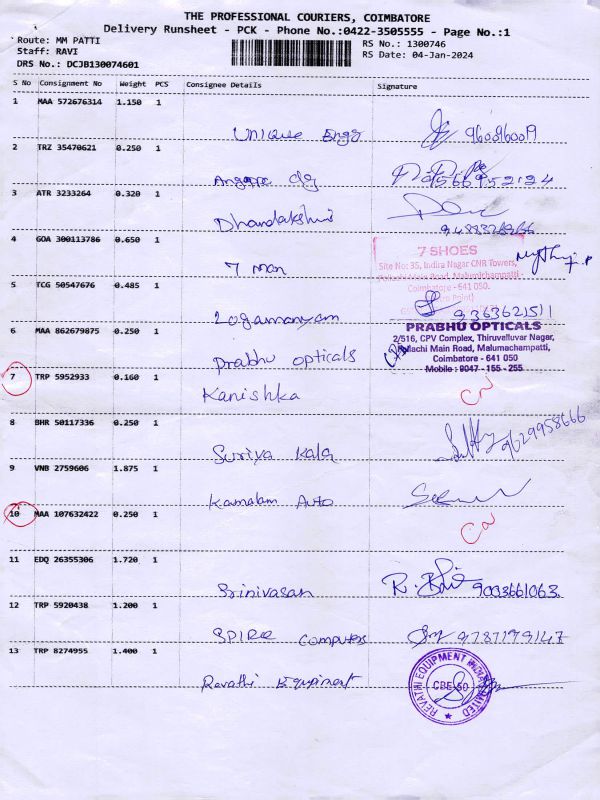 THE PROFESSIONAL COURIERS, COIMBATORE
Delivery Runsheet - PCK - Phone No.:0422-3505555 - Page No.:1
Route: MM PATTI
RS No.: 1300746
Staff: RAVI
RS Date: 04-Jan-2024
DRS No.: DCJB130074601
S No Consignment No Weight PCS Consignee Details Signature
1 MAA 572676314 1.150 1
Unique Engg
2 TRZ 35470621 0.250 1
9566952124
3 ATR 3233264 0.320 1
Dhandakshni
4 GOA 300113786 0.650 1
7 Man
7 SHOES
Site No: 35, Indira Nagar CNR Towers,
Pollachi Main Road, Malumichampatti -
Coimbatore - 641 050.
5 TCG 50547676 0.485 1
Logamanyam
9363621511
6 MAA 862679875 0.250 1
Prabhu opticals
PRABHU OPTICALS
2/516, CPV Complex, Thiruvelluvar Nagar,
Pollachi Main Road, Malumachampatti,
Coimbatore - 641 050
Mobile : 9047 - 155 - 255
7 TRP 5952933 0.160 1
Kanishka
8 BHR 50117336 0.250 1
Suriya Kala
9629958666
9 VNB 2759606 1.875 1
Kamalam Auto
10 MAA 107632422 0.250 1
11 EDQ 26355306 1.720 1
Srinivasan
9003661063
12 TRP 5920438 1.200 1
SPIRE Computers
9787179147
13 TRP 8274955 1.400 1
Revathi Equipment
REVATHI EQUIPMENT INDIA LIMITED
CBE-50